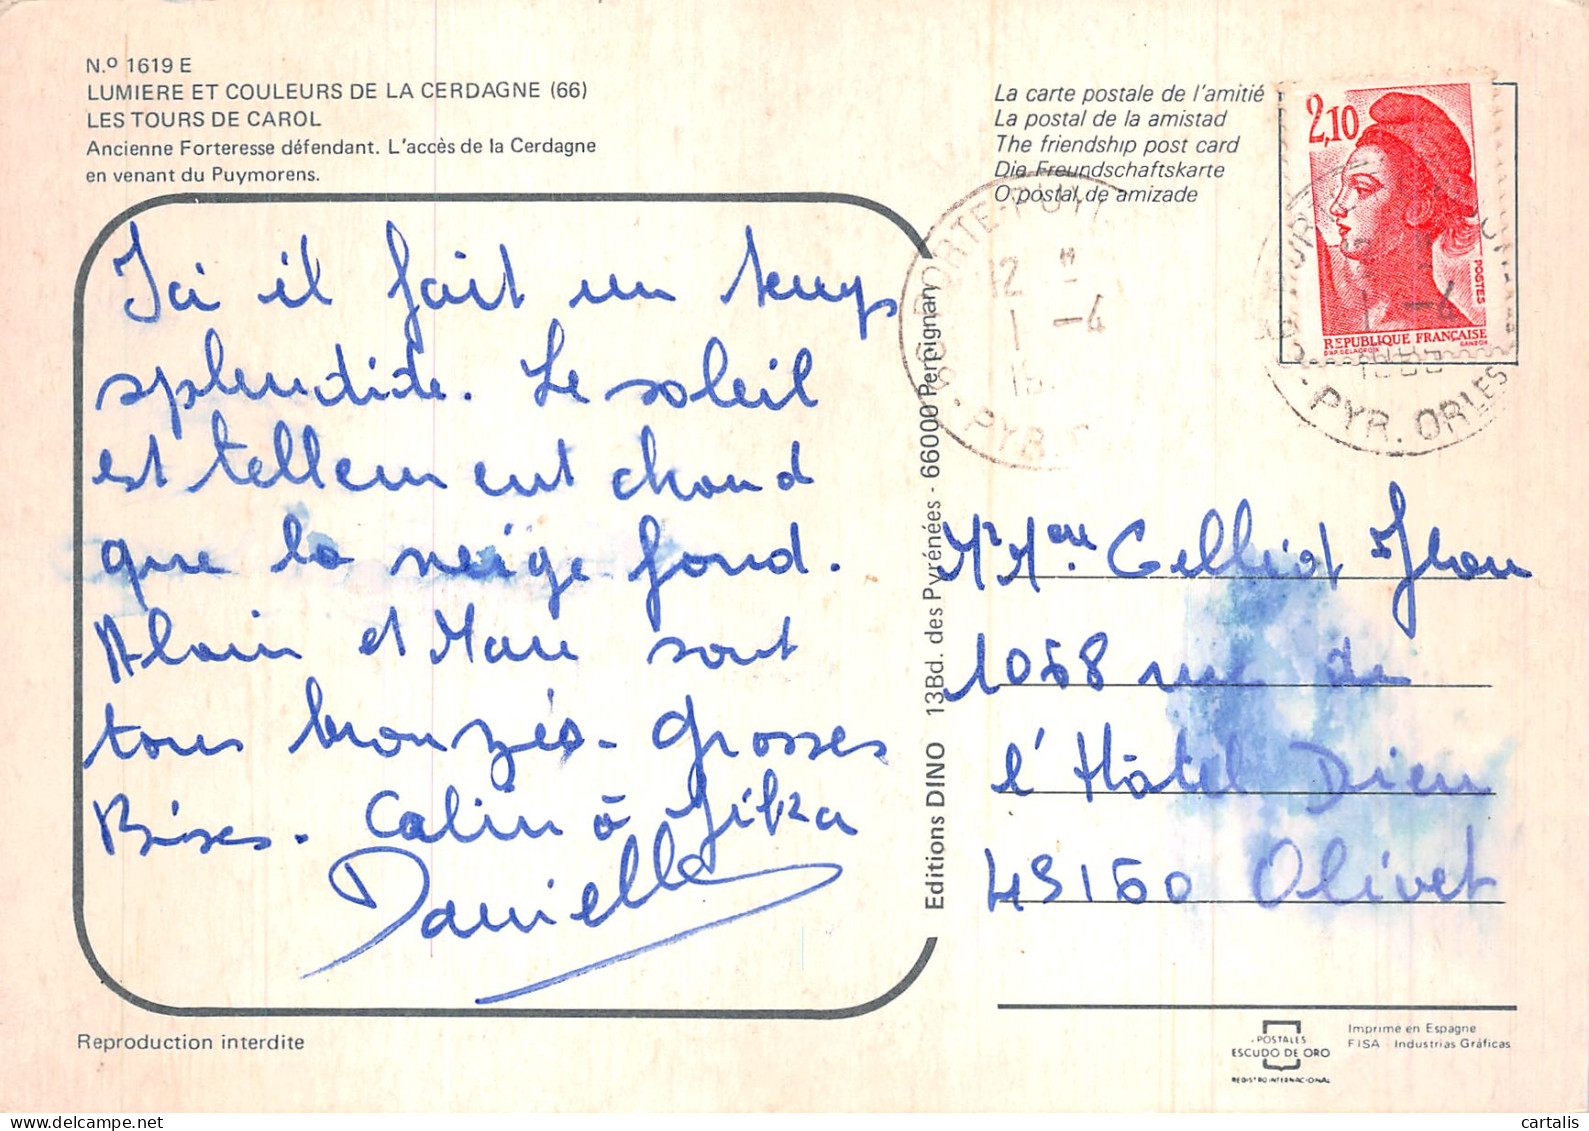 N.º 1619 E
LUMIERE ET COULEURS DE LA CERDAGNE (66)
LES TOURS DE CAROL
Ancienne Forteresse défendant. L'accès de la Cerdagne
en venant du Puymorens.
Ici il fait un temps
splendide. Le soleil
est tellement chaud
que la neige fond.
Alain et Marc sont
tous bronzés. Grosses
Bises. Calin à
Danielle
Reproduction interdite
Editions DINO 13Bd. des Pyrénées - 66000 Perpignan
La carte postale de l'amitié
La postal de la amistad
The friendship post card
Die Freundschaftskarte
O postal de amizade
2,10
POSTES
REPUBLIQUE FRANÇAISE
D'AP. DELACROIX GANDON
66 PORTE-PUY
12 H
1 -4
PYR.
1 -4
PYR. ORLES
Mr Mme Gelliot Jhon
1068 rue de
l'Hôtel Dieu
45160 Olivet
POSTALES
ESCUDO DE ORO
REGISTRO INTERNACIONAL
Imprime en Espagne
FISA - Industrias Gráficas
cartalis